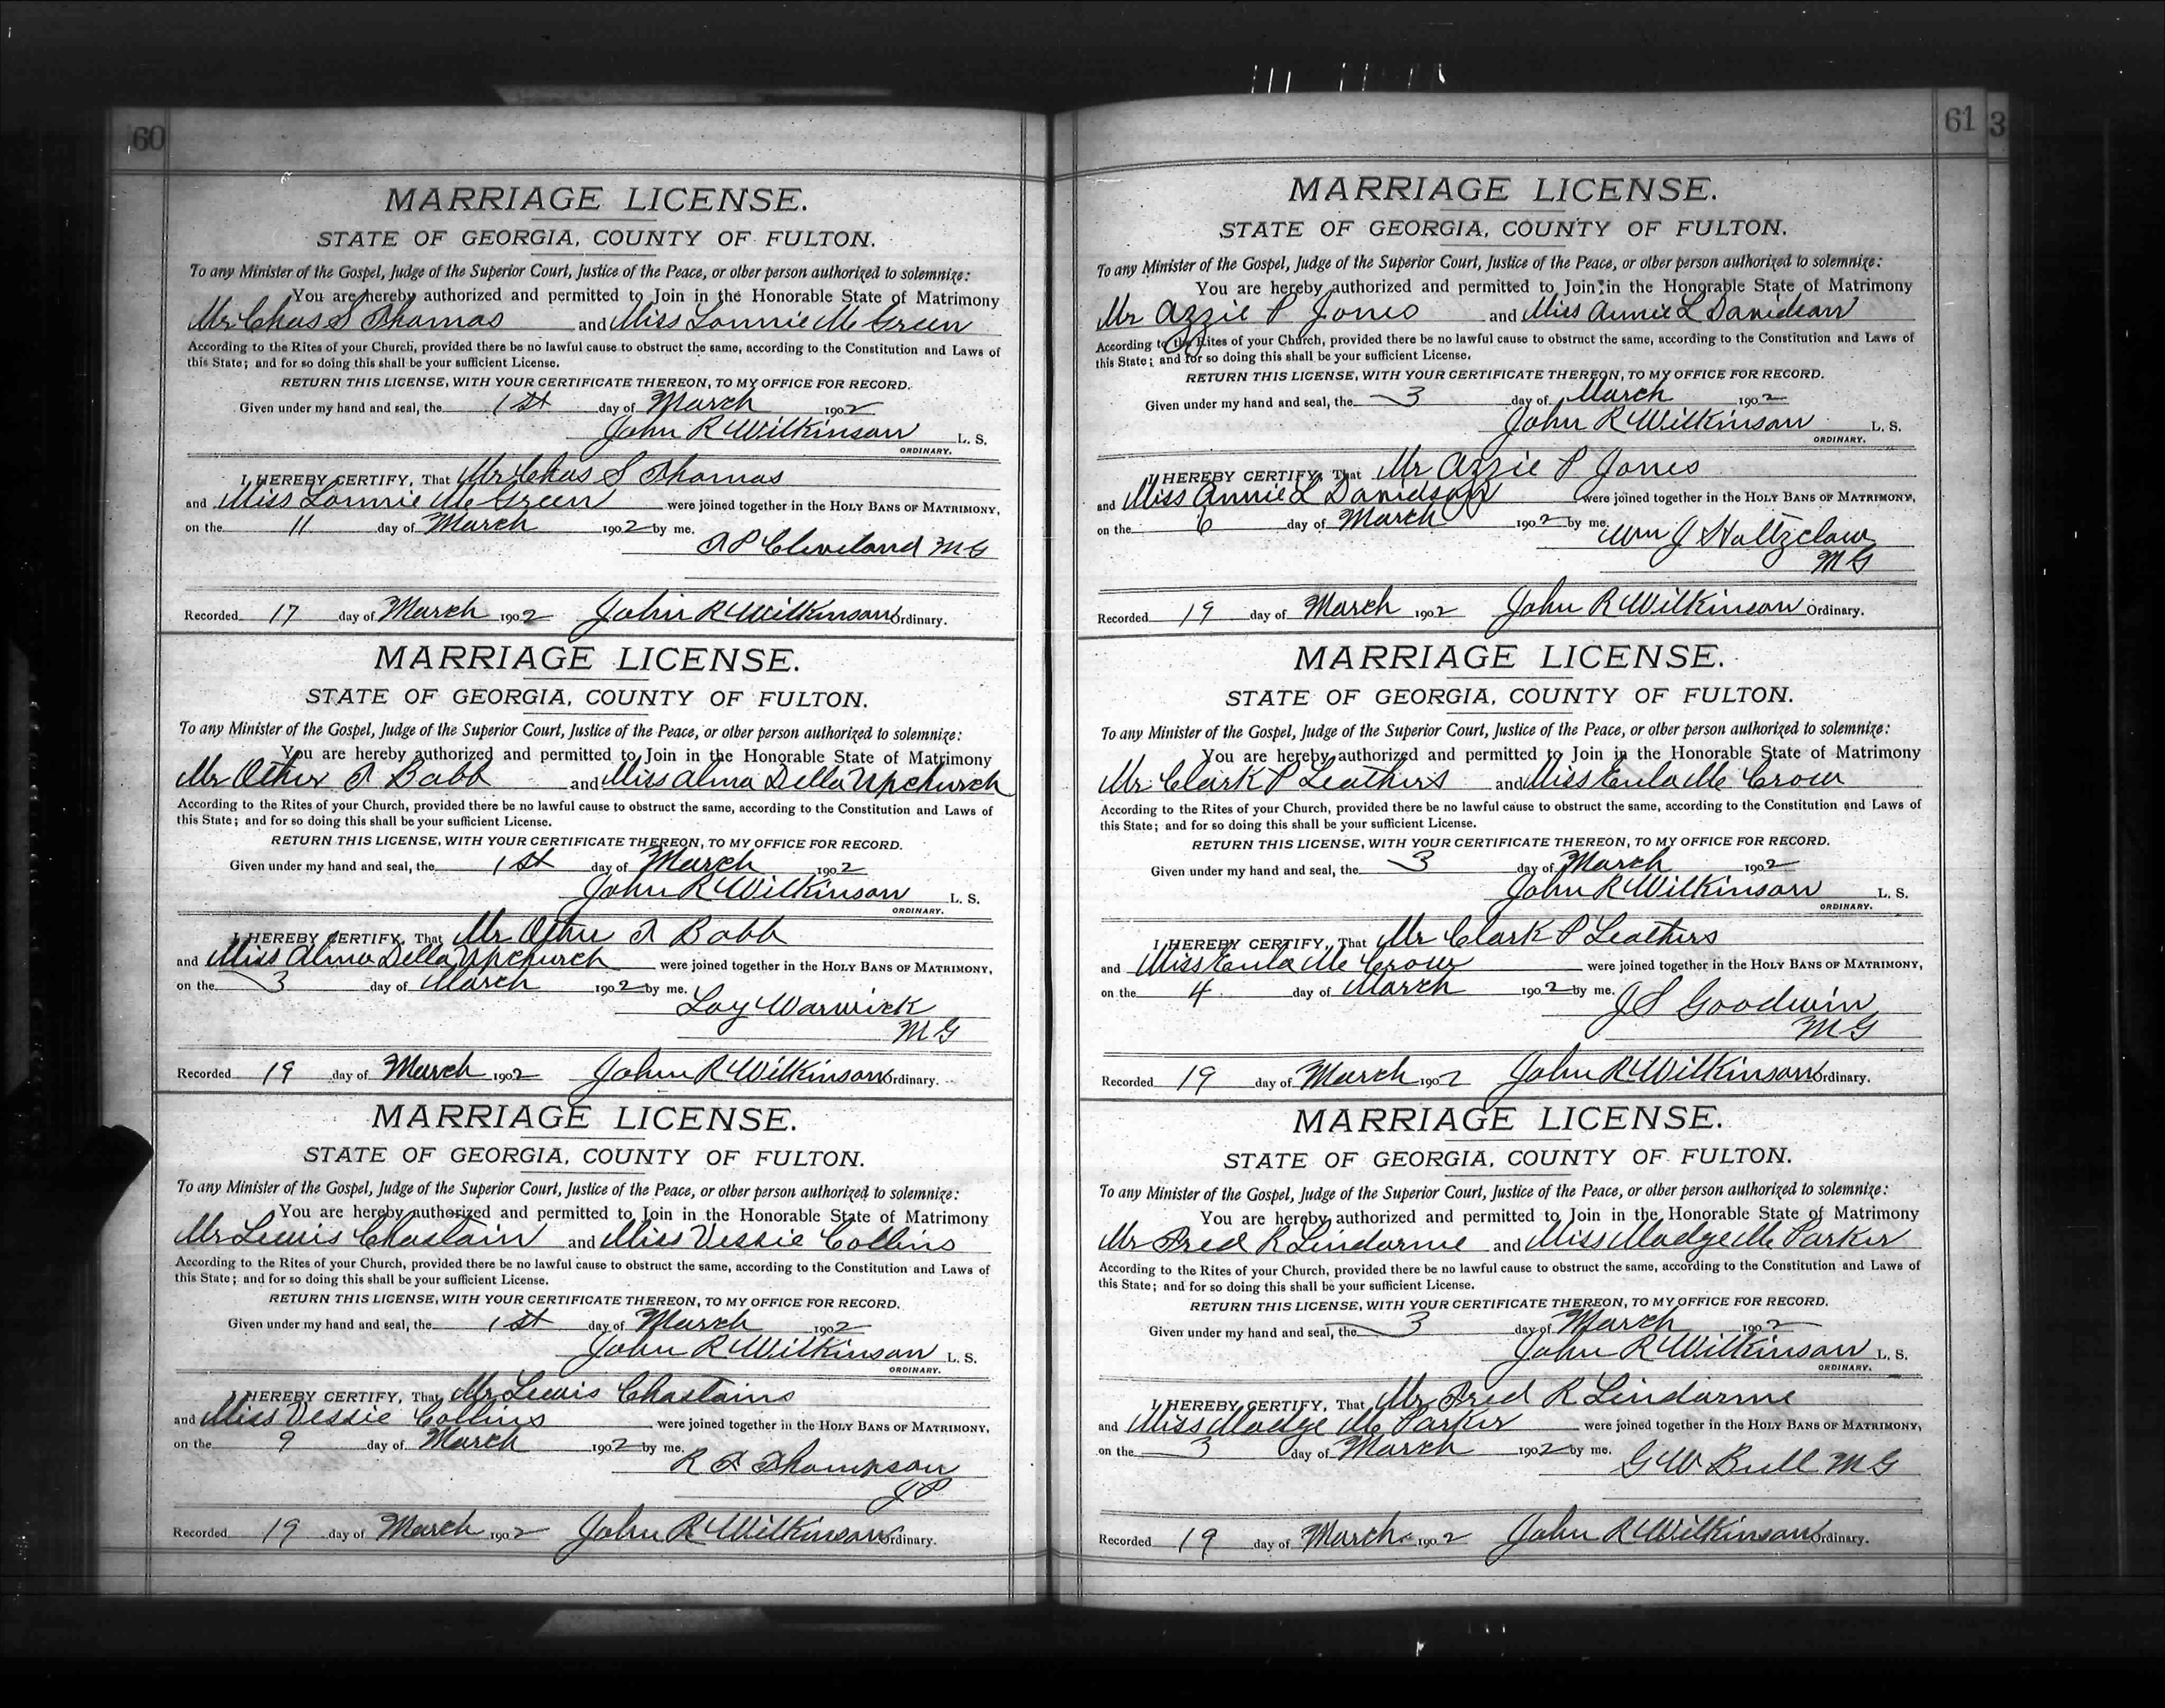 60
MARRIAGE LICENSE.
STATE OF GEORGIA, COUNTY OF FULTON.
To any Minister of the Gospel, Judge of the Superior Court, Justice of the Peace, or other person authorized to solemnize:
You are hereby authorized and permitted to Join in the Honorable State of Matrimony
Mr Chas S Thomas and Miss Lonnie Mc Green
According to the Rites of your Church, provided there be no lawful cause to obstruct the same, according to the Constitution and Laws of
this State; and for so doing this shall be your sufficient License.
RETURN THIS LICENSE, WITH YOUR CERTIFICATE THEREON, TO MY OFFICE FOR RECORD.
Given under my hand and seal, the 1st day of March 1902
John R Wilkinson L. S.
ORDINARY.
I HEREBY CERTIFY, That Mr Chas S Thomas
and Miss Lonnie Mc Green were joined together in the HOLY BANS OF MATRIMONY,
on the 11 day of March 1902 by me.
A P Cleveland MG
Recorded 17 day of March 1902 John R Wilkinson Ordinary.
MARRIAGE LICENSE.
STATE OF GEORGIA, COUNTY OF FULTON.
To any Minister of the Gospel, Judge of the Superior Court, Justice of the Peace, or other person authorized to solemnize:
You are hereby authorized and permitted to Join in the Honorable State of Matrimony
Mr A Babb and Miss Alma Della Upchurch
According to the Rites of your Church, provided there be no lawful cause to obstruct the same, according to the Constitution and Laws of
this State; and for so doing this shall be your sufficient License.
RETURN THIS LICENSE, WITH YOUR CERTIFICATE THEREON, TO MY OFFICE FOR RECORD.
Given under my hand and seal, the 1st day of March 1902
John R Wilkinson L. S.
ORDINARY.
I HEREBY CERTIFY, That Mr A Babb
and Miss Alma Della Upchurch were joined together in the HOLY BANS OF MATRIMONY,
on the 3 day of March 1902 by me.
Loy Warwick
MG
Recorded 19 day of March 1902 John R Wilkinson Ordinary.
MARRIAGE LICENSE.
STATE OF GEORGIA, COUNTY OF FULTON.
To any Minister of the Gospel, Judge of the Superior Court, Justice of the Peace, or other person authorized to solemnize:
You are hereby authorized and permitted to Join in the Honorable State of Matrimony
Mr Lewis Chastain and Miss Vessie Collins
According to the Rites of your Church, provided there be no lawful cause to obstruct the same, according to the Constitution and Laws of
this State; and for so doing this shall be your sufficient License.
RETURN THIS LICENSE, WITH YOUR CERTIFICATE THEREON, TO MY OFFICE FOR RECORD.
Given under my hand and seal, the 1st day of March 1902
John R Wilkinson L. S.
ORDINARY.
I HEREBY CERTIFY, That Mr Lewis Chastains
and Miss Vessie Collins were joined together in the HOLY BANS OF MATRIMONY,
on the 9 day of March 1902 by me.
R Thompson
JP
Recorded 19 day of March 1902 John R Wilkinson Ordinary.
61 3
MARRIAGE LICENSE.
STATE OF GEORGIA, COUNTY OF FULTON.
To any Minister of the Gospel, Judge of the Superior Court, Justice of the Peace, or other person authorized to solemnize:
You are hereby authorized and permitted to Join in the Honorable State of Matrimony
Mr Azzie P Jones and Miss Annie L Davidson
According to the Rites of your Church, provided there be no lawful cause to obstruct the same, according to the Constitution and Laws of
this State; and for so doing this shall be your sufficient License.
RETURN THIS LICENSE, WITH YOUR CERTIFICATE THEREON, TO MY OFFICE FOR RECORD.
Given under my hand and seal, the 3 day of March 1902
John R Wilkinson L. S.
ORDINARY.
I HEREBY CERTIFY, That Mr Azzie P Jones
and Miss Annie L Davidson were joined together in the HOLY BANS OF MATRIMONY,
on the 6 day of March 1902 by me.
Wm J Holtzclaw
MG
Recorded 19 day of March 1902 John R Wilkinson Ordinary.
MARRIAGE LICENSE.
STATE OF GEORGIA, COUNTY OF FULTON.
To any Minister of the Gospel, Judge of the Superior Court, Justice of the Peace, or other person authorized to solemnize:
You are hereby authorized and permitted to Join in the Honorable State of Matrimony
Mr Clark P Leathers and Miss Eula Mc Crow
According to the Rites of your Church, provided there be no lawful cause to obstruct the same, according to the Constitution and Laws of
this State; and for so doing this shall be your sufficient License.
RETURN THIS LICENSE, WITH YOUR CERTIFICATE THEREON, TO MY OFFICE FOR RECORD.
Given under my hand and seal, the 3 day of March 1902
John R Wilkinson L. S.
ORDINARY.
I HEREBY CERTIFY, That Mr Clark P Leathers
and Miss Eula Mc Crow were joined together in the HOLY BANS OF MATRIMONY,
on the 4 day of March 1902 by me.
J S Goodwin
MG
Recorded 19 day of March 1902 John R Wilkinson Ordinary.
MARRIAGE LICENSE.
STATE OF GEORGIA, COUNTY OF FULTON.
To any Minister of the Gospel, Judge of the Superior Court, Justice of the Peace, or other person authorized to solemnize:
You are hereby authorized and permitted to Join in the Honorable State of Matrimony
Mr Fred R Lindorme and Miss Madge Mc Parker
According to the Rites of your Church, provided there be no lawful cause to obstruct the same, according to the Constitution and Laws of
this State; and for so doing this shall be your sufficient License.
RETURN THIS LICENSE, WITH YOUR CERTIFICATE THEREON, TO MY OFFICE FOR RECORD.
Given under my hand and seal, the 3 day of March 1902
John R Wilkinson L. S.
ORDINARY.
I HEREBY CERTIFY, That Mr Fred R Lindorme
and Miss Madge Mc Parker were joined together in the HOLY BANS OF MATRIMONY,
on the 3 day of March 1902 by me.
G W Bull MG
Recorded 19 day of March 1902 John R Wilkinson Ordinary.